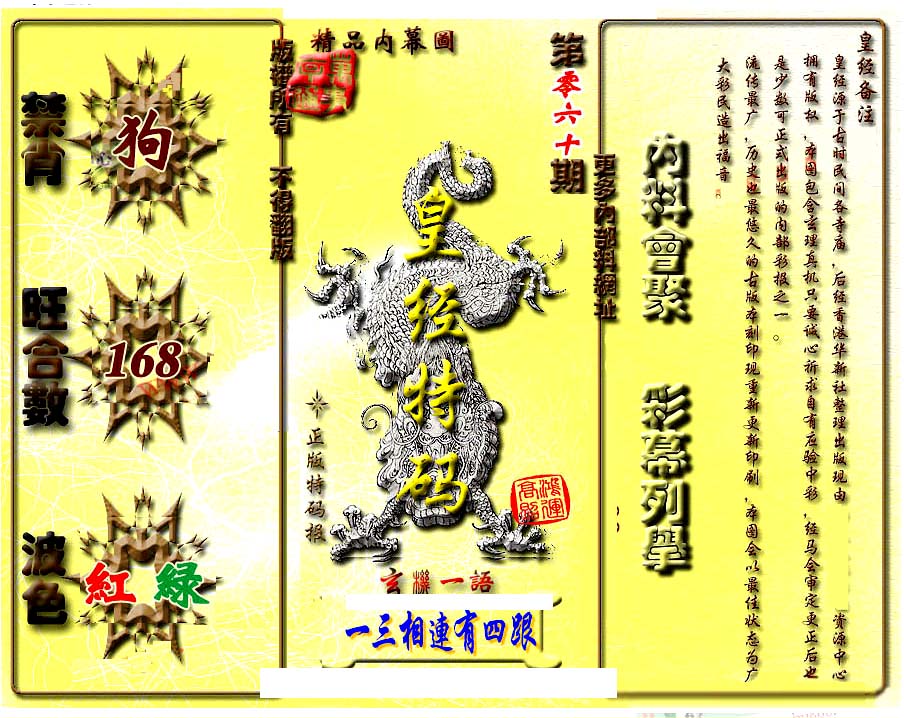 皇经备注
皇经源于古时民间各寺庙，后经香港华新社整理出版现由
资源中心
拥有版权，本图包含玄理真机只要诚心祈求自有应验中彩，经马会审定更正后也
是少数可正式出版的内部彩报之一。
流传最广，历史也最悠久的古版本刻印现重新更新印刷，本图会以最佳状态为广
大彩民造出福音
内料會聚
彩幕列舉
更多內部料網址
第零六十期
精品内幕圖
皇经特码
正版特码报
鴻運
高照
玄機一語
一三相連有四跟
版權所有 不得翻版
禁肖
狗
旺合數
168
波色
紅 綠